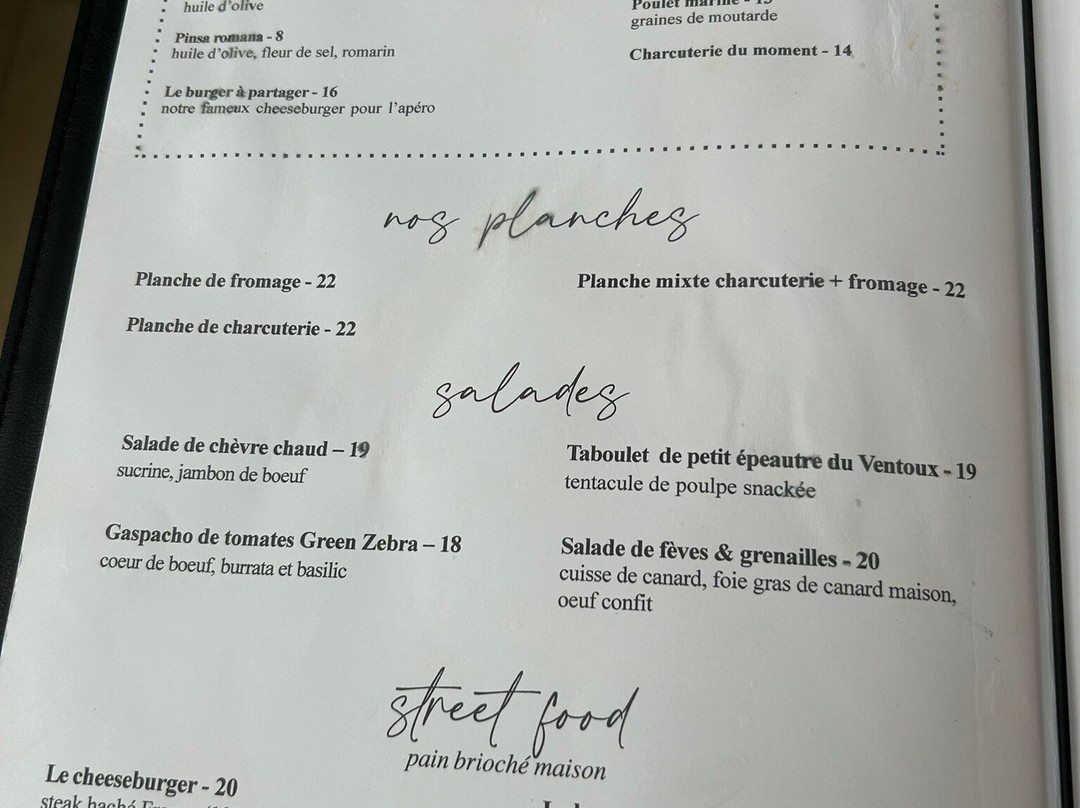 huile d'olive
Pinsa romana - 8
huile d'olive, fleur de sel, romarin
Le burger à partager - 16
notre fameux cheeseburger pour l'apéro
Poulet mariné - 15
graines de moutarde
Charcuterie du moment - 14
nos planches
Planche de fromage - 22
Planche de charcuterie - 22
Planche mixte charcuterie + fromage - 22
salades
Salade de chèvre chaud – 19
sucrine, jambon de boeuf
Gaspacho de tomates Green Zebra – 18
coeur de boeuf, burrata et basilic
Taboulet de petit épeautre du Ventoux - 19
tentacule de poulpe snackée
Salade de fèves & grenailles - 20
cuisse de canard, foie gras de canard maison,
oeuf confit
street food
pain brioché maison
Le cheeseburger - 20
steak haché